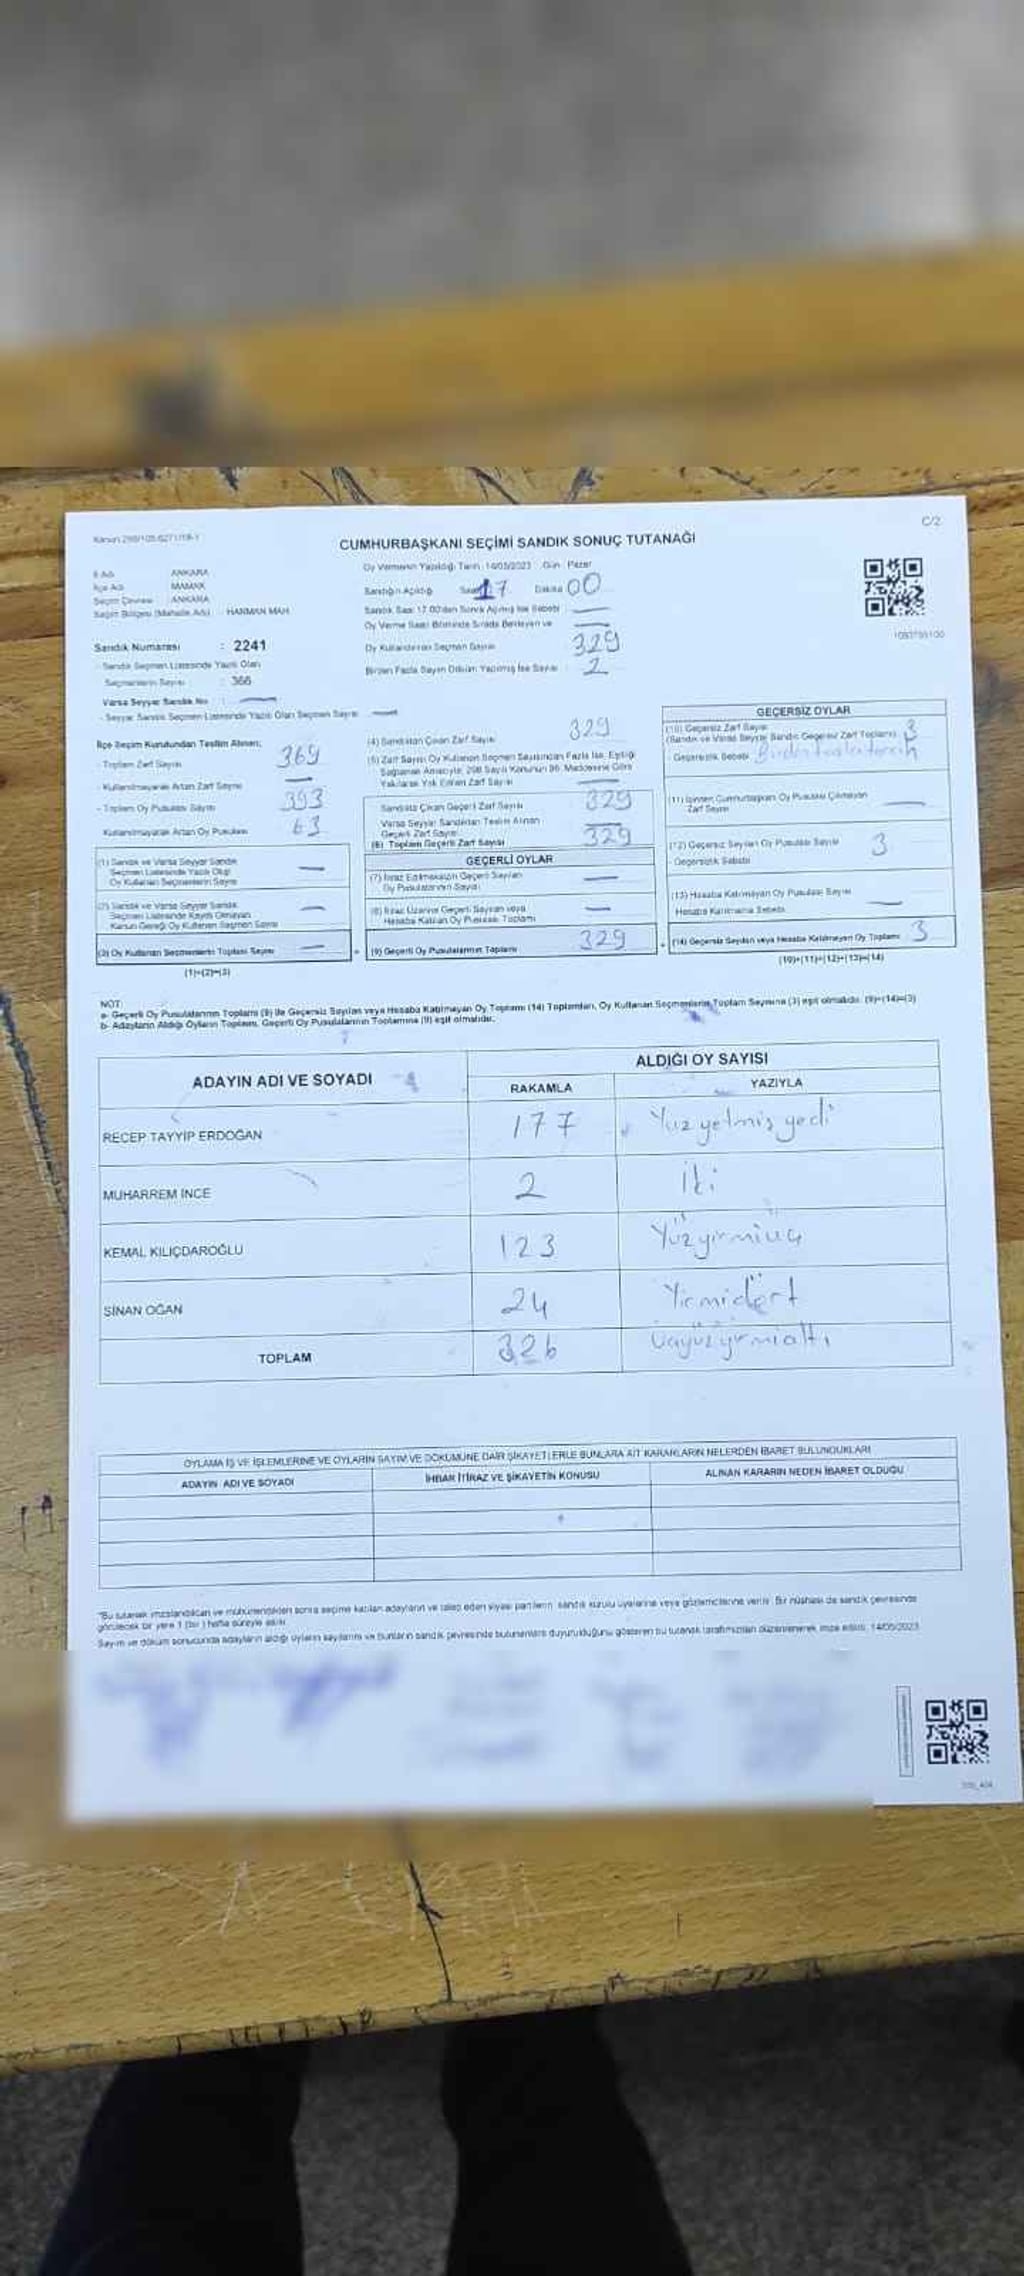 C/2
Kanun 298/105-6271/18-1
CUMHURBAŞKANI SEÇİMİ SANDIK SONUÇ TUTANAĞI
İl Adı ANKARA
İlçe Adı MAMAK
Seçim Çevresi ANKARA
Seçim Bölgesi (Mahalle Adı) : HARMAN MAH.
Sandık Numarası : 2241
- Sandık Seçmen Listesinde Yazılı Olan
Seçmenlerin Sayısı : 366
Varsa Seyyar Sandık No :
- Seyyar Sandık Seçmen Listesinde Yazılı Olan Seçmen Sayısı
Oy Vermenin Yapıldığı Tarih: 14/05/2023 Gün: Pazar
Sandığın Açıldığı Saat 17 Dakika 00
Sandık Saat 17.00'den Sonra Açılmış İse Sebebi
Oy Verme Saati Bitiminde Sırada Bekleyen ve
Oy Kullandırılan Seçmen Sayısı 329
Birden Fazla Sayım Döküm Yapılmış İse Sayısı : 2
İlçe Seçim Kurulundan Teslim Alınan;
- Toplam Zarf Sayısı 369
- Kullanılmayarak Artan Zarf Sayısı
- Toplam Oy Pusulası Sayısı 393
Kullanılmayarak Artan Oy Pusulası 63
(1) Sandık ve Varsa Seyyar Sandık
Seçmen Listesinde Yazılı Olup
Oy Kullanan Seçmenlerin Sayısı
(2) Sandık ve Varsa Seyyar Sandık
Seçmen Listesinde Kayıtlı Olmayan
Kanun Gereği Oy Kullanan Seçmen Sayısı
(3) Oy Kullanan Seçmenlerin Toplam Sayısı
(1)+(2)=(3)
(4) Sandıktan Çıkan Zarf Sayısı 329
(5) Zarf Sayısı Oy Kullanan Seçmen Sayısından Fazla İse, Eşitliği
Sağlamak Amacıyla, 298 Sayılı Kanunun 98. Maddesine Göre
Yakılarak Yok Edilen Zarf Sayısı
Sandıkta Çıkan Geçerli Zarf Sayısı 329
Varsa Seyyar Sandıktan Teslim Alınan
Geçerli Zarf Sayısı
(6) Toplam Geçerli Zarf Sayısı 329
GEÇERLİ OYLAR
(7) İtiraz Edilmeksizin Geçerli Sayılan
Oy Pusulalarının Sayısı
(8) İtiraz Üzerine Geçerli Sayılan veya
Hesaba Katılan Oy Pusulası Toplamı
(9) Geçerli Oy Pusulalarının Toplamı 329
GEÇERSİZ OYLAR
(10) Geçersiz Zarf Sayısı
(Sandık ve Varsa Seyyar Sandık Geçersiz Zarf Toplamı) 3
- Geçersizlik Sebebi Birden fazla tercih
(11) İçinden Cumhurbaşkanı Oy Pusulası Çıkmayan
Zarf Sayısı
(12) Geçersiz Sayılan Oy Pusulası Sayısı 3
- Geçersizlik Sebebi
(13) Hesaba Katılmayan Oy Pusulası Sayısı
Hesaba Katılmama Sebebi
(14) Geçersiz Sayılan veya Hesaba Katılmayan Oy Toplamı 3
(10)+(11)+(12)+(13)=(14)
NOT:
a- Geçerli Oy Pusulalarının Toplamı (9) ile Geçersiz Sayılan veya Hesaba Katılmayan Oy Toplamı (14) Toplamları, Oy Kullanan Seçmenlerin Toplam Sayısına (3) eşit olmalıdır. (9)+(14)=(3)
b- Adayların Aldığı Oyların Toplamı, Geçerli Oy Pusulalarının Toplamına (9) eşit olmalıdır.
ADAYIN ADI VE SOYADI
ALDIĞI OY SAYISI
RAKAMLA YAZIYLA
RECEP TAYYİP ERDOĞAN 177 Yüz yetmiş yedi
MUHARREM İNCE 2 İki
KEMAL KILIÇDAROĞLU 123 Yüzyirmiüç
SİNAN OĞAN 24 Yirmidört
TOPLAM 326 Üçyüzyirmialtı
OYLAMA İŞ VE İŞLEMLERİNE VE OYLARIN SAYIM VE DÖKÜMÜNE DAİR ŞİKAYETLERLE BUNLARA AİT KARARLARIN NELERDEN İBARET BULUNDUKLARI
ADAYIN ADI VE SOYADI İHBAR İTİRAZ VE ŞİKAYETİN KONUSU ALINAN KARARIN NEDEN İBARET OLDUĞU
"Bu tutanak imzalandıktan ve mühürlendikten sonra seçime katılan adayların ve talep eden siyasi partilerin sandık kurulu üyelerine veya gözlemcilerine verilir. Bir nüshası da sandık çevresinde
görülecek bir yere 1 (bir) hafta süreyle asılır.
Sayım ve döküm sonucunda adayların aldığı oyların sayılarını ve bunların sandık çevresinde bulunanlara duyurulduğunu gösteren bu tutanak tarafımızdan düzenlenerek imza edildi. 14/05/2023